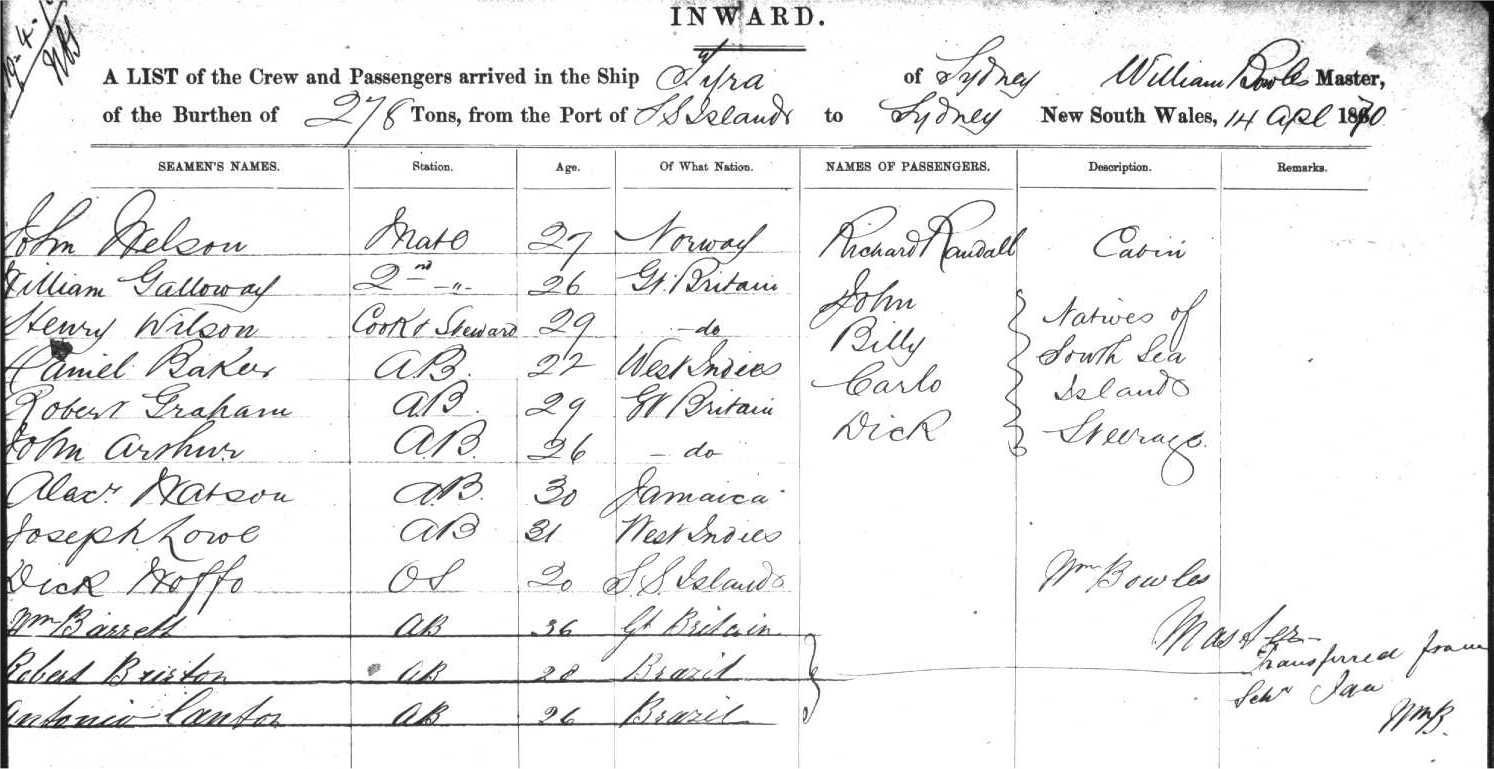 INWARD.
A LIST of the Crew and Passengers arrived in the Ship Tyra of Sydney William Bowles Master,
of the Burthen of 278 Tons, from the Port of S S Islands to Sydney New South Wales, 14 Apl 1870
SEAMEN'S NAMES. Station. Age. Of What Nation. NAMES OF PASSENGERS. Description. Remarks.
John Nelson Mate 27 Norway Richard Randall Cabin
William Galloway 2nd -"- 26 Gt. Britain John
Henry Wilson Cook & Steward 29 - do Billy Natives of
Daniel Baker AB. 22 West Indies Carlo South Sea
Robert Graham AB. 29 Gt Britain Dick Islands
John Arthur A.B. 26 - do Steerage.
Alexr. Watson A.B. 30 Jamaica
Joseph Lowe AB 31 West Indies
Dick OS 20 S S. Islands Wm Bowles
Wm Barrett AB 36 Gt Britain Master
Robert AB 28 Brazil Transferred from
Antonio AB 26 Brazil Schr
WmB.